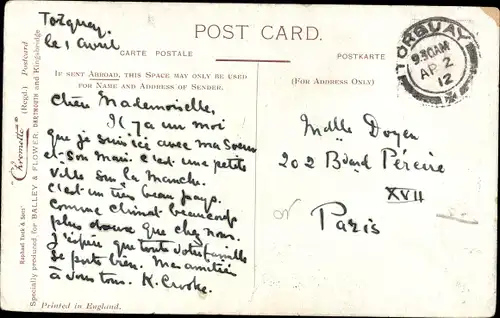 Torquay.
le 1 Avril
POST CARD.
CARTE POSTALE
POSTKARTE
IF SENT ABROAD, THIS SPACE MAY ONLY BE USED
FOR NAME AND ADDRESS OF SENDER.
(FOR ADDRESS ONLY)
TORQUAY
9 30AM
AP 2
12
Chère Mademoiselle,
Il y a un moi
que je suis ici avec ma Soeur
et son Mari. C'est une petite
ville sur la Manche.
C'est un très beau pays.
Comme climat beaucoup
plus doux que chez nous.
J'espère que toute votre famille
se porte bien. Mes amitiés
à vous tous. K. Crooke.
Mdlle Doyen
202 Bould Péreire
XVII
Paris
"Chromette" (Regd.) Postcard
Raphael Tuck & Sons'
Specially produced for BALLEY & FLOWER, DARTMOUTH and Kingsbridge
Printed in England.